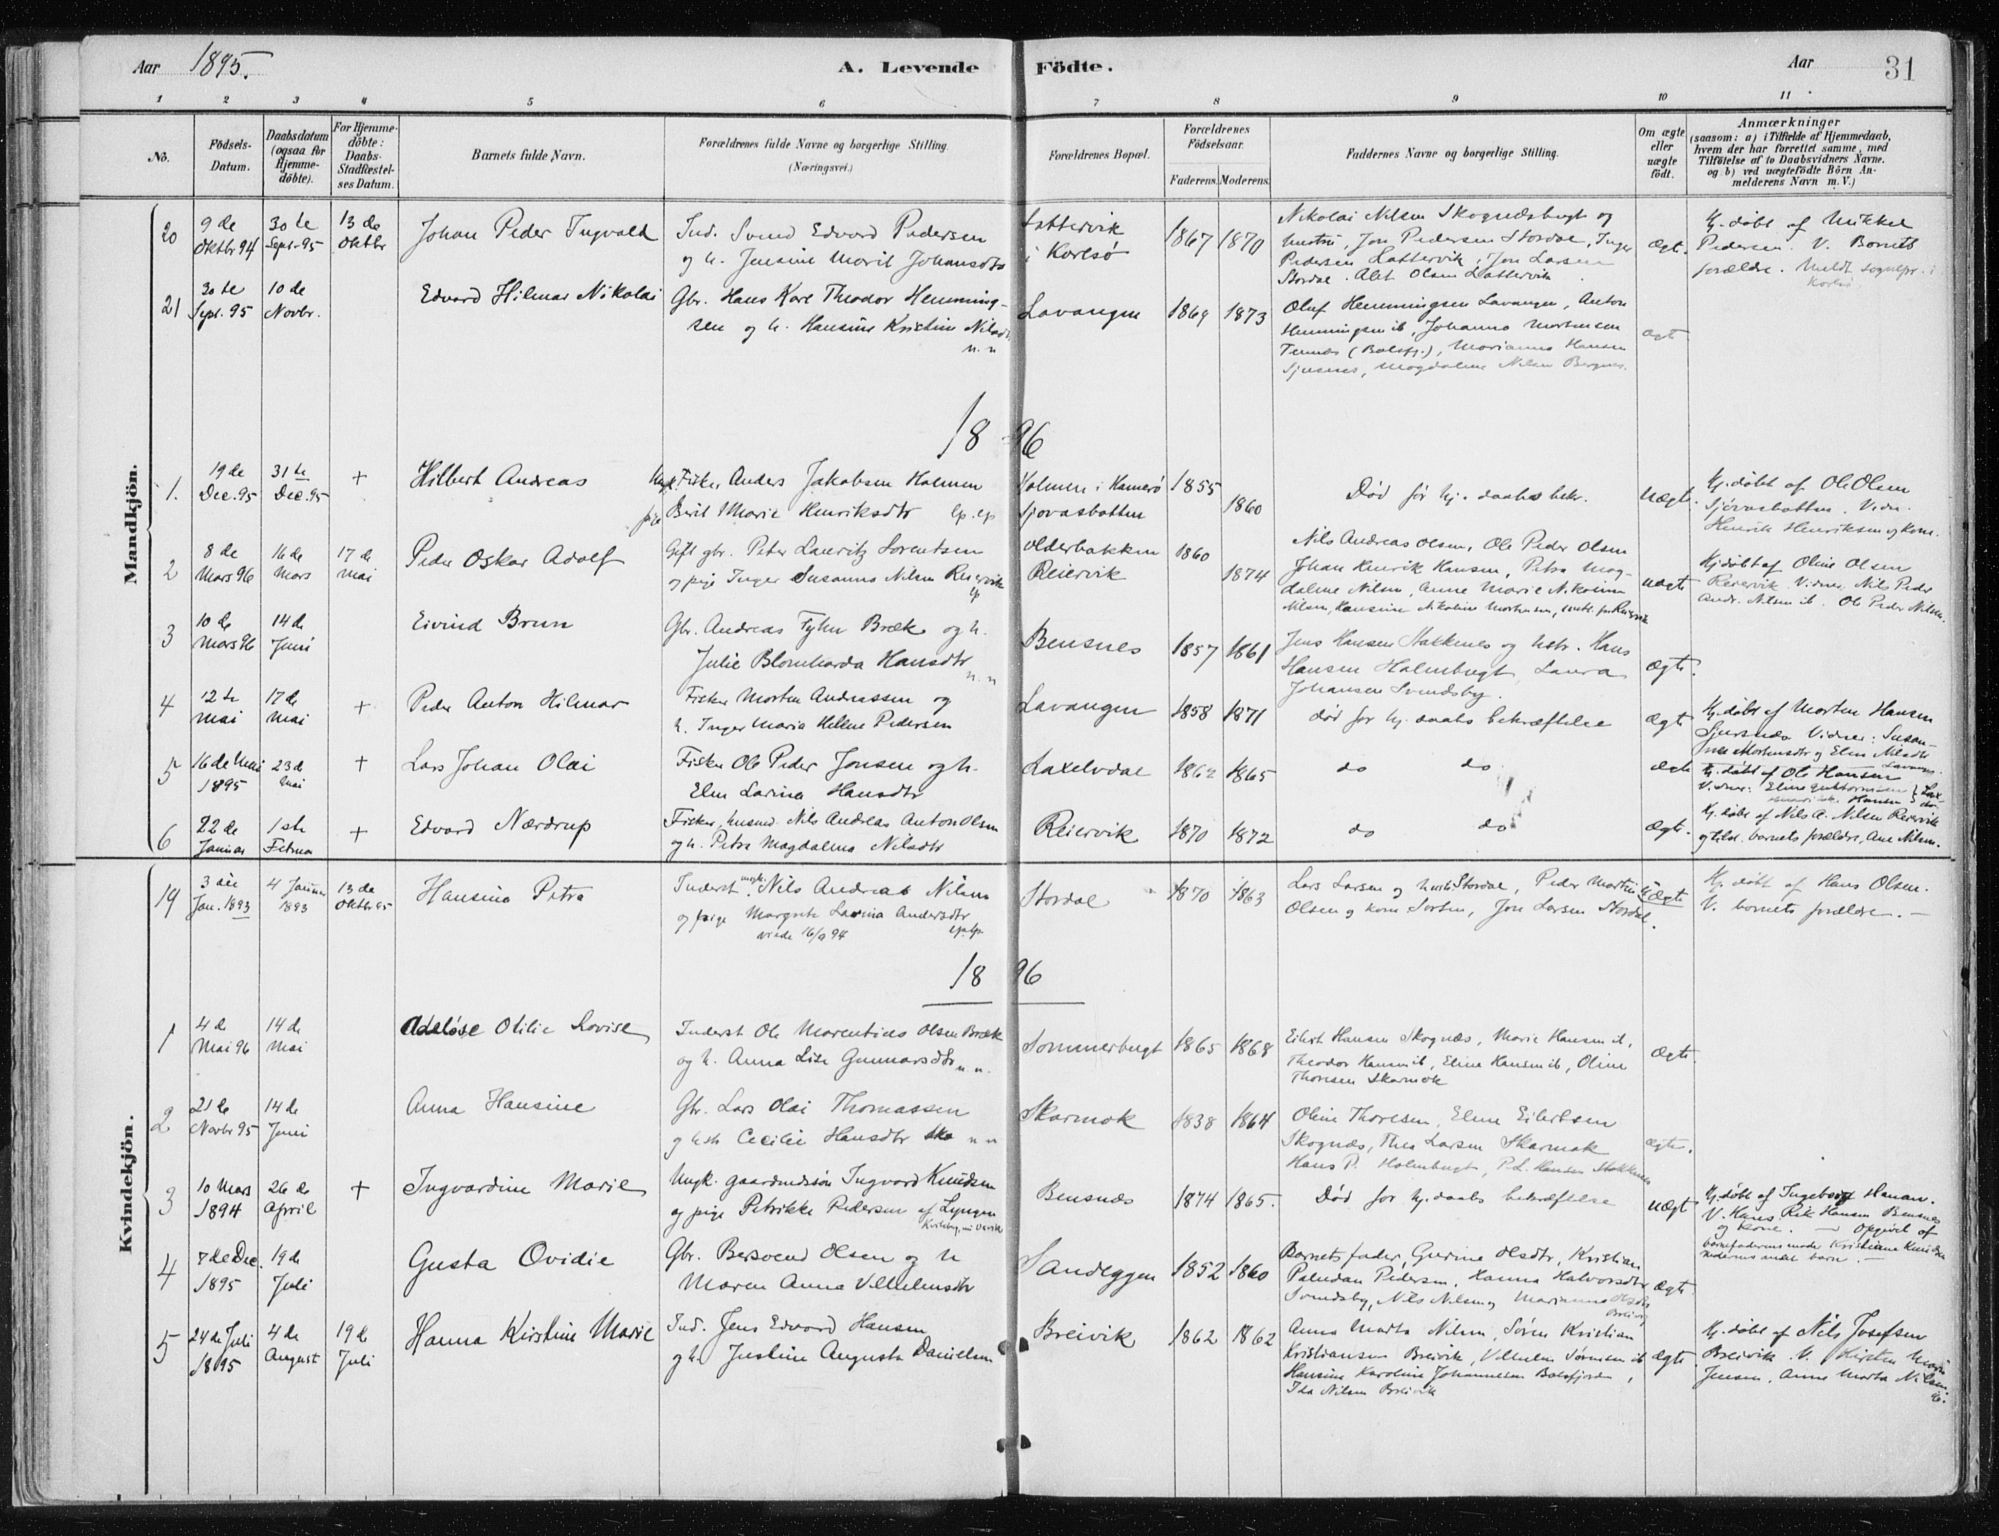 Aar 1895.
A. Levende Födte.
Aar 31
1 2 3 4 5 6 7 8 9 10 11
No.
Födsels-
Datum.
Daabsdatum
(ogsaa for
Hjemme-
döbte).
For Hjemme-
döbte:
Daabs-
Stadfæstel-
ses Datum.
Barnets fulde Navn.
Forældrenes fulde Navne og borgerlige Stilling.
(Næringsvei.)
Forældrenes Bopæl.
Forældrenes
Födselsaar.
Faderens. Moderens.
Faddernes Navne og borgerlige Stilling.
Om ægte
eller
uægte
födt.
Anmærkninger
(saasom: a) i Tilfælde af Hjemmedaab,
hvem der har forrettet samme, med
Tilföielse af to Daabsvidners Navne.
og b) ved uægtefödte Börn An-
melderens Navn m. V.)
Mandkjön.
20
9 de
Oktbr 94
30 te
Sept. 95
13 de
Oktbr
Johan Peder Ingvald
Ind. Svend Edvard Pedersen
og h. Jensine Marit Johansdtr
Lattervik
i Karlsø
1867 1870
Nikolai Nilsen Skognæsbugt og
hustru, Jon Pedersen Stordal, Inger
Pedersen Lattervik, Jon Larsen
Stordal. Alet Olsen Lattervik
ægte.
Hj. døbt af Mikkel
Pedersen. V. Barnets
forældre. Meldt sognepr. i
Karlsø
21
30 te
Sept. 95
10 de
Novbr.
Edvard Hilmar Nikolai
Gbr. Hans Karl Theodor Hemming-
sen og h. Hansine Kristine Nilsdtr
n. n
Lavangen
1869 1873
Oluf Hemmingsen Lavangen, Anton
Hemmingsen ib, Johanna Mortensen
Tennæs (Balsfj.), Marianna Hansen
Sjursnes, Magdalene Nilsen Bergnes.
ægte
1896
1.
19 de
Dec. 95
31 te
Dec. 95
+
Hilbert Andreas
Ungk. Fisker Anders Jakobsen Holmen
pige Berit Marie Henriksdtr lp. lp
Holmen i Hamerø
Sjovasbotten
1855
1860
Død før hj. daabs bekr.
Uægte
Hj. døbt af Ole Olsen
Sjövasbotten. Vidn.
Henrik Henriksen og kone.
2
8 de
Mars 96
16 de
Mars
17 de
Mai
Peder Oskar Adolf
Gift gbr. Peter Lauritz Lorentsen
og pige Inger Susanna Nilsen Reiervik
lp
Olderbakken
Reiervik
1860
1874
Nils Andreas Olsen, Ole Peder Olsen
Johan Henrik Hansen, Petra Mag-
dalene Nilsen, Anne Marie Nikoline
Nilsen, Hansine Nikoline Mortensen,
uægte
Hj. døbt af Oline Olsen
Reiervik. Vidner, Nils Peder
Andr. Nilsen ib. Ole Peder Nilsen.
3
10 de
Mars 96
14 de
Juni
Eivind Brun
Gbr. Andreas Fyhn Bræk og h.
Julie Blomharda Hansdtr
n. n
Bensnes
1857 1861
Jens Hansen Stakkenes og hstr. Hans
Hansen Holmbugt, Laura
Johansen Svendsby.
ægte.
4
12 te
Mai
17 de
Mai
+
Peder Anton Hilmar
Fisker Morten Andreassen og
h. Inger Maria Hellene Pedersen
Lavangen
1858 1871
død før hj. daabs bekræftelse
ægte
Hj. døbt af Morten Hansen
Sjursnæs Vidner: Susan-
ne Mortensdtr og Eline Nilsdtr
Lavangen.
5
16 de Mai
1895
23 d
Mai
+
Lars Johan Olai
Fisker Ole Peder Jonsen og h.
Elen Larina Hansdtr
Laxelvdal
1862 1865
do do
ægte
Hj. døbt af Ole Hansen
6
22 de
Januar
1 ste
Februar
+
Edvard Nærdrup
Fisker, husmd. Nils Andreas Anton Olsen
og h. Petra Magdalena Nilsdtr
Reiervik
1870 1872
do do
ægte.
Hj. døbt af Nils A. Nilsen Reiervik
barnets forældre, Ane Nilsen.
Kvindekjön.
19
3 die
Jan. 1893
4 Januar
1893
13 de
Oktbr 95
Hansina Petra
Inderst ungk. Nils Andreas Nilsen
og pige Margrete Lavina Andersdtr
viede 16/9 94 lp. lp.
Stordal
1870 1863
Lars Larsen og hustr. Stordal, Peder Martin
Olsen og kone Sorten, Jon Larsen Nordal.
Uægte
Hj. døbt af Hans Olsen.
V. barnets forældre. —
1896
1
4 de
Mai 96
14 de
Mai
Adeløse Otilie Lovise
Inderst Ole Marentius Olsen Bræk
og h. Anna Lise Gunnarsdtr n. n.
Sommerbugt
1865 1868
Eilert Hansen Skognæs, Marie Hansen ib,
Theodor Hansen ib, Eline Hansen ib, Oline
Thoresen Skarmok
ægte.
2
21 de
Novbr 95
14 de
Juni
Anna Hansine
Gbr. Lars Olai Thomassen
og hstr Cecilie Hansdtr n n
Skarmok
1838 1864
Oline Thoresen, Eline Eilertsen
Skognæs, Thea Larsen Skarmok
Hans P. Holmbugt, P. L. Hansen Stakkenes
ægte.
3
10 Mars
1894
26 de
April
+
Ingvardine Marie
Ungk. gaardmdssøn Ingvard Knudsen
og pige Petrikke Pedersen af Lyngen
Bensnæs
1874 1865.
Død før hj. daabs bekræftelse
uægte
Hj. døbt af Ingeborg Hansen.
V. Hans Rik Hansen Bensnes
og kone. — Opgivet af
barnefaderens moder Kristianne Knudsen
moderens andet barn. —
4
7 de Dec.
1895
19 de
Juli
Gusta Ovidie
Gbr. Bersvend Olsen og h
Maren Anna Vilhelmsdtr
Sandeggen
1852 1860
Barnets fader, Gurine Olsdtr, Kristian
Paludan Pedersen, Hanna Halvorsdtr
Svendsby, Nils Nilsen og Marianna Olsdtr
Breivik
ægte
5
24 de Juli
1895
4 de
August
19 de
Juli
Hanna Kirstine Marie
Ind. Jens Edvard Hansen
og h. Justine Augusta Danielsen
Breivik
1862 1862
Anna Marta Nilsen, Søren Kristian
Kristiansen Breivik, Vilhelm Sørensen ib
Hansine Karoline Johannesen Balsfjorden,
Ida Nilsen Breivik
ægte
Hj. døbt af Nils Josefsen
Breivik V. Kirsten Marie
Jensen, Anne Marta Nilsen.
ib.